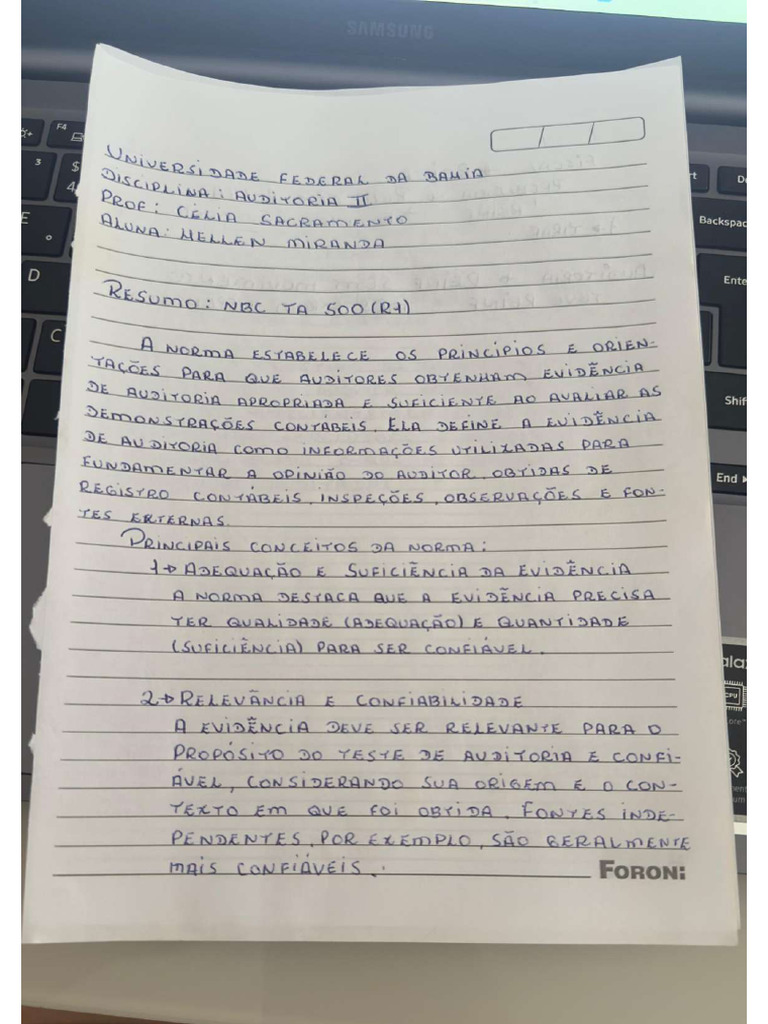 SAMSUNG
F4
3
$
4
E
D
C
Backspac
Ente
Shif
End
UNIVERSIDADE FEDERAL DA BAHIA
DISCIPLINA: AUDITORIA II
PROF: CÉLIA SACRAMENTO
ALUNA: HELLEN MIRANDA
RESUMO: NBC TA 500 (R1)
A NORMA ESTABELECE OS PRINCÍPIOS E ORIEN-
TAÇÕES PARA QUE AUDITORES OBTENHAM EVIDÊNCIA
DE AUDITORIA APROPRIADA E SUFICIENTE AO AVALIAR AS
DEMONSTRAÇÕES CONTÁBEIS. ELA DEFINE A EVIDÊNCIA
DE AUDITORIA COMO INFORMAÇÕES UTILIZADAS PARA
FUNDAMENTAR A OPINIÃO DO AUDITOR, OBTIDAS DE
REGISTRO CONTÁBEIS, INSPEÇÕES, OBSERVAÇÕES E FON-
TES EXTERNAS.
PRINCIPAIS CONCEITOS DA NORMA:
1→ ADEQUAÇÃO E SUFICIÊNCIA DA EVIDÊNCIA
A NORMA DESTACA QUE A EVIDÊNCIA PRECISA
TER QUALIDADE (ADEQUAÇÃO) E QUANTIDADE
(SUFICIÊNCIA) PARA SER CONFIÁVEL.
2→ RELEVÂNCIA E CONFIABILIDADE
A EVIDÊNCIA DEVE SER RELEVANTE PARA O
PROPÓSITO DO TESTE DE AUDITORIA E CONFI-
ÁVEL, CONSIDERANDO SUA ORIGEM E O CON-
TEXTO EM QUE FOI OBTIDA. FONTES INDE-
PENDENTES, POR EXEMPLO, SÃO GERALMENTE
MAIS CONFIÁVEIS.
FORONI